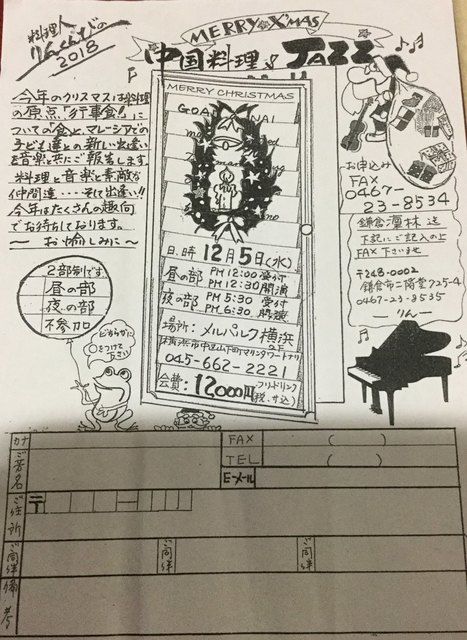 料理人
りんくんびの
2018
MERRY X'MAS
中国料理 & JAZZ
今年のクリスマスは料理
の原点「行事食!!」に
ついての食と、マレーシアでの
子ども達との新しい出逢い
を音楽と共にご報告します。
料理と音楽と素敵な
仲間達・・・・そして出逢い!!
今年はたくさんの趣向
でお待ちしております。
〜 お楽しみに 〜
2部制です。
昼の部
夜の部
不参加
どちらかに
○をつけて
下さい
MERRY CHRISTMAS
日時 12月5日(水)
昼の部 PM 12:00 受付
PM 12:30 開演
夜の部 PM 5:30 受付
PM 6:30 開演
場所: メルパルク横浜
2F
横浜市中区山下町マリンタワートナリ
045-662-2221
会費: 12,000円 フリードリンク
(税、サ込)
お申込み
FAX
0467-
23-8534
鎌倉凛林 迄
下記にご記入の上
FAX下さいませ
〒248-0002
鎌倉市二階堂725-4
0467-23-8535
りん
カナ
ご芳名
FAX ( )
TEL ( )
E-メール
ご住所
〒
ご同伴
ご同伴
ご同伴
備考